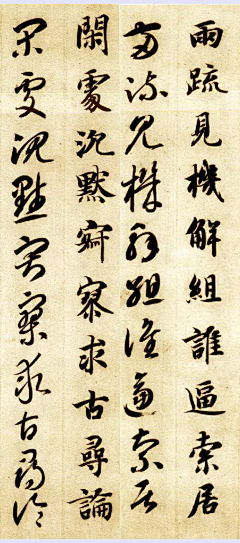 雨疏見機解組誰逼索居
兩疏見機解組誰逼索居
閑處沉默寂寥求古尋論
閑處沉默寂寥求古尋論